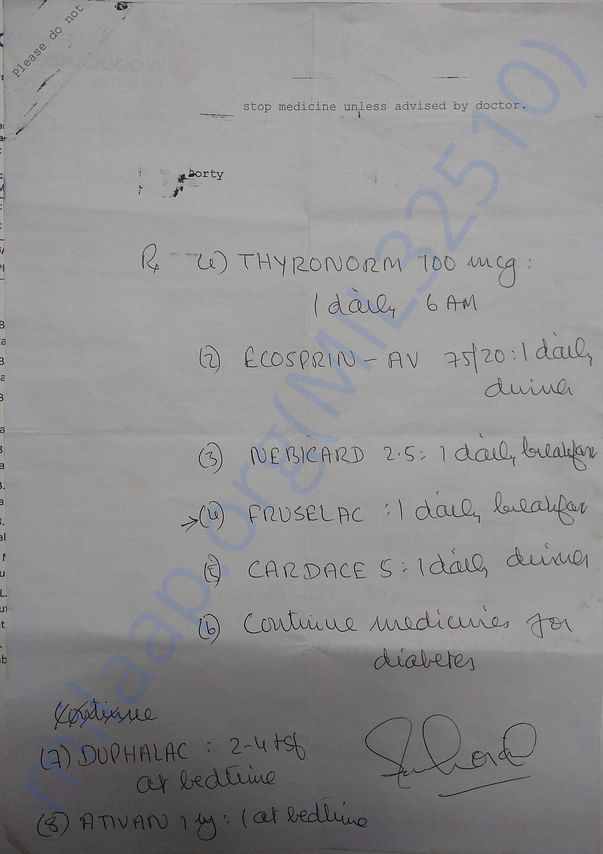 Please do not
stop medicine unless advised by doctor.
borty
Rx (1) THYRONORM 100 mcg :
1 daily 6 AM
(2) ECOSPRIN - AV 75/20 : 1 daily
dinner
(3) NEBICARD 2.5 : 1 daily breakfast
→ (4) FRUSELAC : 1 daily breakfast
(5) CARDACE 5 : 1 daily dinner
(6) Continue medicines for
diabetes
Continue
(7) DUPHALAC : 2-4 tsf
at bedtime
(8) ATIVAN 1 mg : 1 at bedtime
milaap.org(MIL32510)